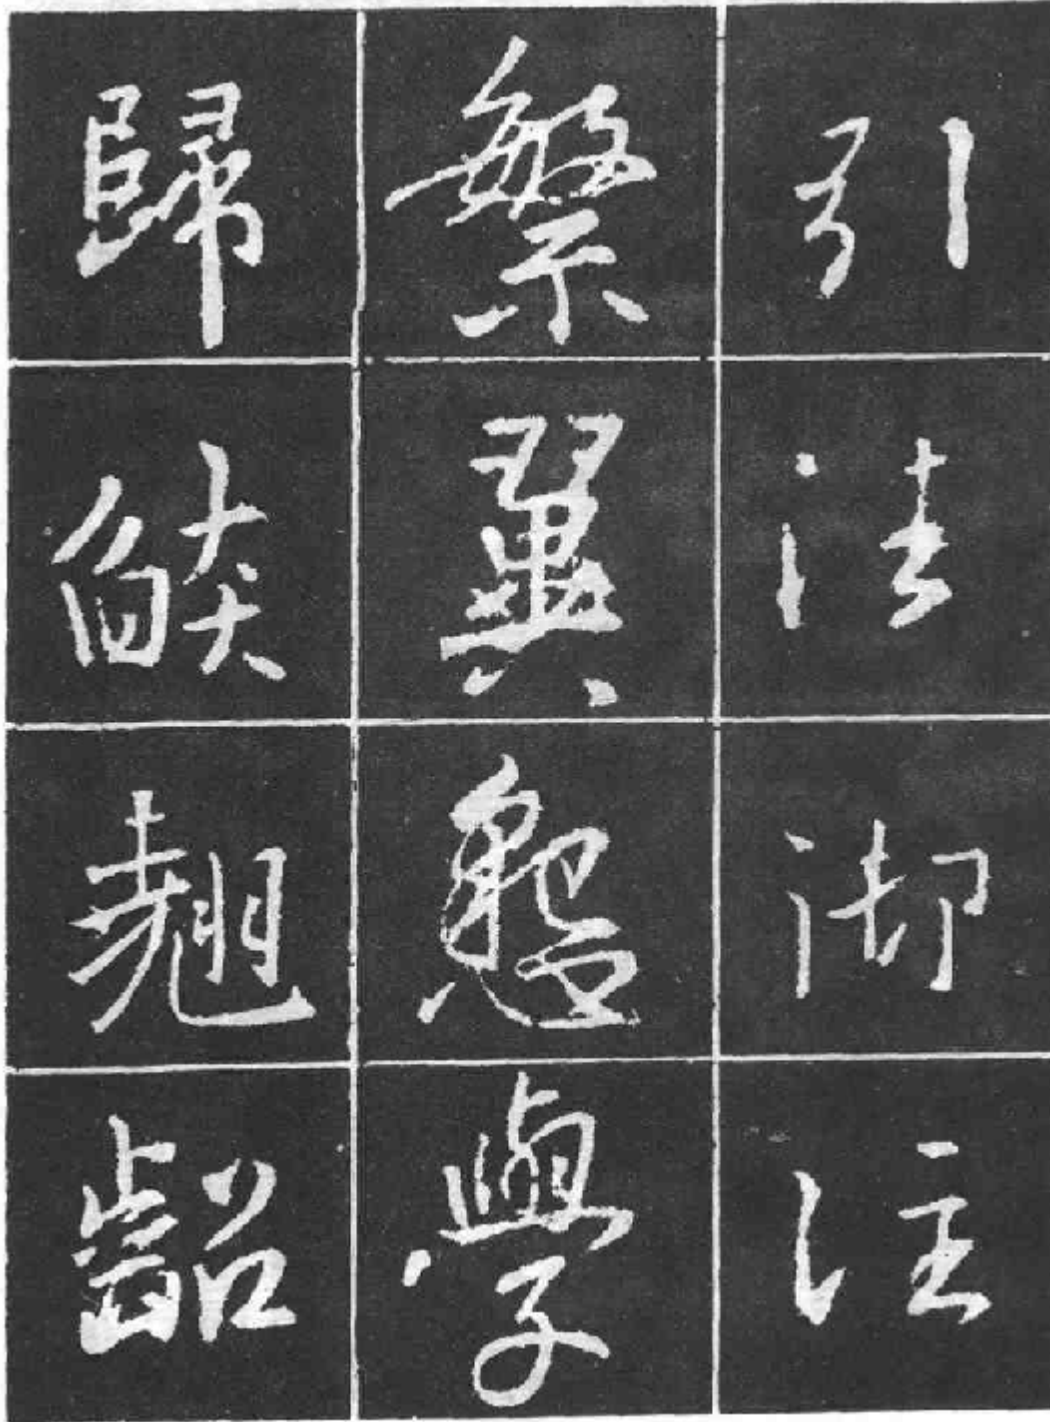 引法御注
繁翼懇學
歸燄翹齠